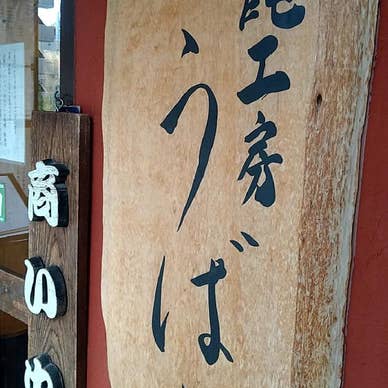 工房
うば
商い